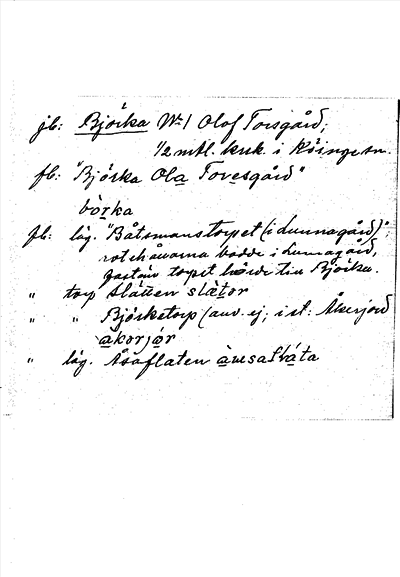 jb: Björka No 1 Olof Torsgård;
1/2 mtl. krk. i Röinge sn.
fb: "Björka Ola Toresgård"
bòrka
fb: läg. "Båtsmanstorpet (i Lunnagård)";
rotehåvarna bodde i Lunnagård,
fastän torpet hörde till Björka.
" torp Slätten slätor
" " Björketorp (anv. ej; i st: Åkerjord
akorjor
" läg. Åsaflaten